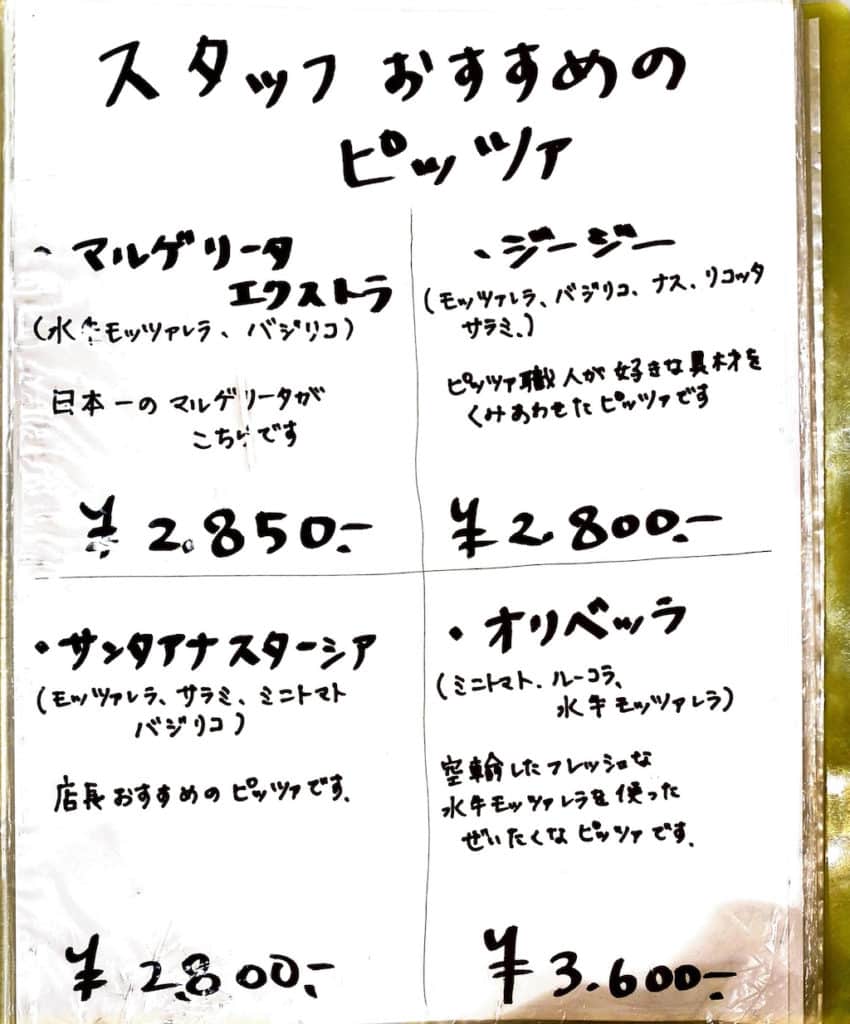 スタッフおすすめの
ピッツァ
・マルゲリータ
エクストラ
(水牛モッツァレラ、バジリコ)
日本一のマルゲリータが
こちらです
¥2.850.-
・ジージー
(モッツァレラ、バジリコ、ナス、リコッタ
サラミ、)
ピッツァ職人が好きな具材を
くみあわせたピッツァです
¥2.800.-
・サンタアナスターシア
(モッツァレラ、サラミ、ミニトマト
バジリコ)
店長おすすめのピッツァです.
¥2.800.-
・オリベッラ
(ミニトマト.ルーコラ、
水牛モッツァレラ)
空輸したフレッシュな
水牛モッツァレラを使った
ぜいたくなピッツァです.
¥3.600.-